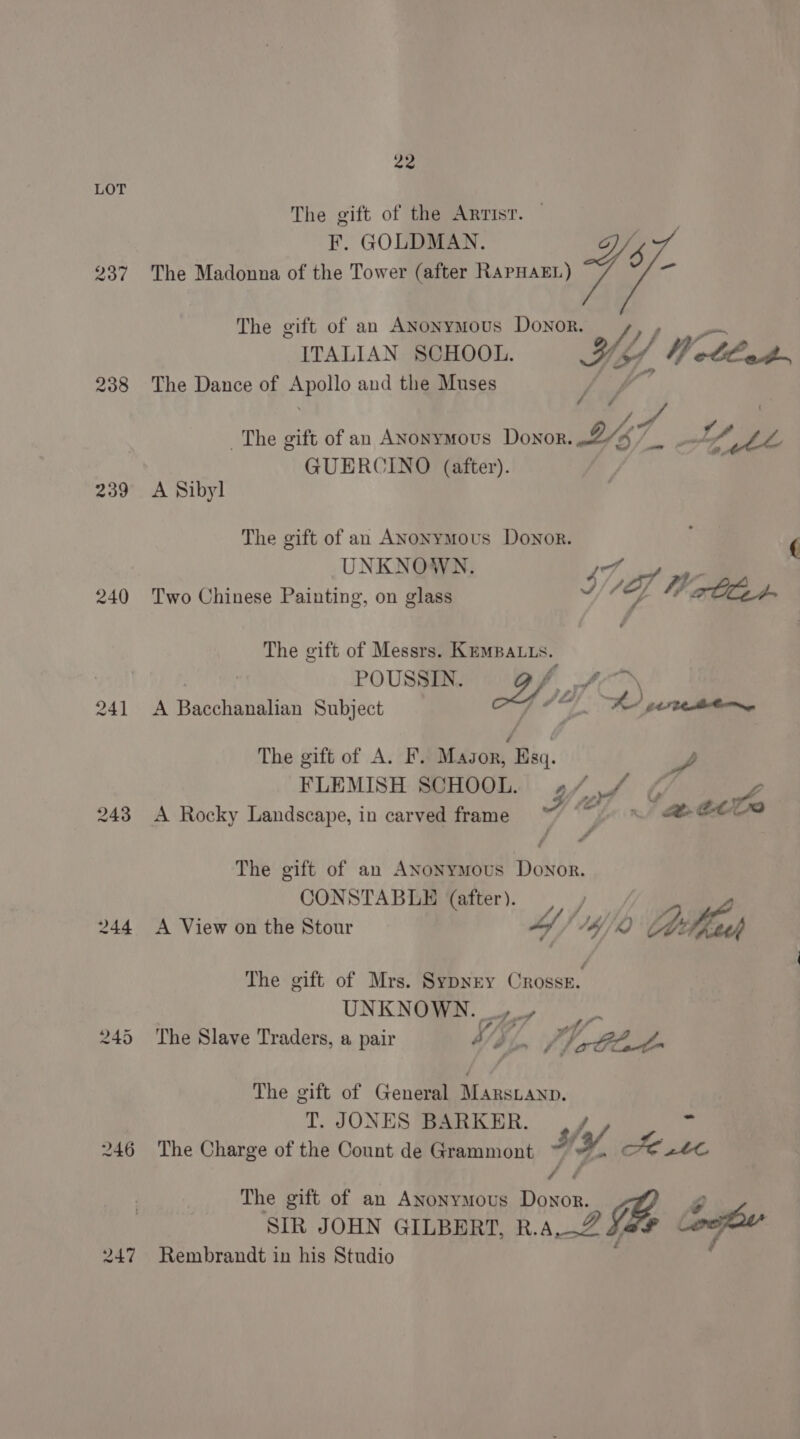 22
LOT
The gift of the ARTIST.
F. GOLDMAN.
237 The Madonna of the Tower (after RAPHAEL)
The gift of an ANONYMOUS DONOR.
ITALIAN SCHOOL.
238 The Dance of Apollo and the Muses
The gift of an ANONYMOUS DONOR.
GUERCINO (after).
239 A Sibyl
The gift of an ANONYMOUS DONOR.
UNKNOWN.
240 Two Chinese Painting, on glass
The gift of Messrs. KEMBALLS.
POUSSIN.
241 A Bacchanalian Subject
The gift of A. F. MAJOR, Esq.
FLEMISH SCHOOL.
243 A Rocky Landscape, in carved frame
The gift of an ANONYMOUS DONOR.
CONSTABLE (after).
244 A View on the Stour
The gift of Mrs. SYDNEY CROSSE.
UNKNOWN.
245 The Slave Traders, a pair
The gift of General MARSLAND.
T. JONES BARKER.
246 The Charge of the Count de Grammont
The gift of an ANONYMOUS DONOR.
SIR JOHN GILBERT, R.A.
247 Rembrandt in his Studio